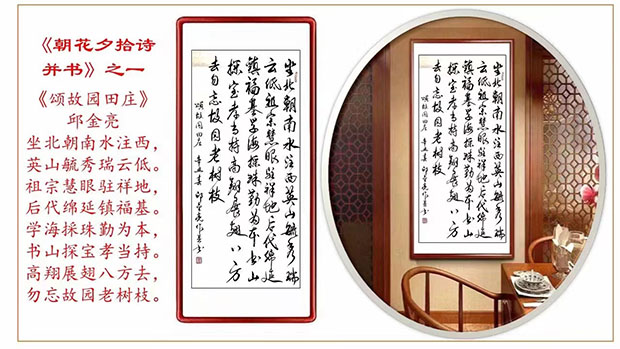 《朝花夕拾诗
并书》之一
《颂故园田庄》
邱金亮
坐北朝南水注西，
英山毓秀瑞云低。
祖宗慧眼驻祥地，
后代绵延镇福基。
学海採珠勤为本，
书山探宝孝当持。
高翔展翅八方去，
勿忘故园老树枝。
坐北朝南水注西英山毓秀瑞
云低祖宗慧眼驻祥地后代绵延
镇福基学海採珠勤为本书山
探宝孝当持高翔展翅八方
去勿忘故园老树枝
颂故园田庄 辛丑春 邱金亮作并书
坐北朝南水注西英山毓秀瑞
云低祖宗慧眼驻祥地后代绵延
镇福基学海採珠勤为本书山
探宝孝当持高翔展翅八方
去勿忘故园老树枝
颂故园田庄 辛丑春 邱金亮作并书